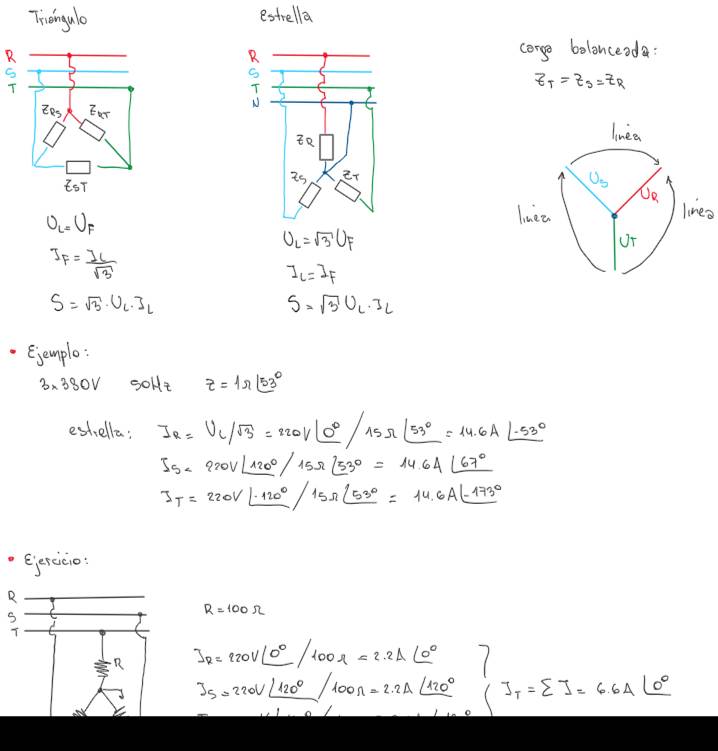 Triángulo
R
S
T
Z_RS Z_RT
Z_ST
U_L = U_F
I_F = I_L/√3
S = √3 · U_L · I_L
estrella
R
S
T
N
Z_R
Z_S Z_T
U_L = √3 U_F
I_L = I_F
S = √3 U_L · I_L
carga balanceada:
Z_T = Z_S = Z_R
linea
U_S U_R
linea linea
U_T
• Ejemplo:
3x380V 50Hz Z = 1Ω ∠53°
estrella: I_R = U_L/√3 = 220V ∠0° / 15Ω ∠53° = 14.6A ∠-53°
I_S = 220V ∠120° / 15Ω ∠53° = 14.6A ∠67°
I_T = 220V ∠-120° / 15Ω ∠53° = 14.6A ∠-173°
• Ejercicio:
R
S
T
R
R = 100 Ω
I_R = 220V ∠0° / 100Ω = 2.2A ∠0°
I_S = 220V ∠120° / 100Ω = 2.2A ∠120°
I_T = ∑ I = 6.6A ∠0°